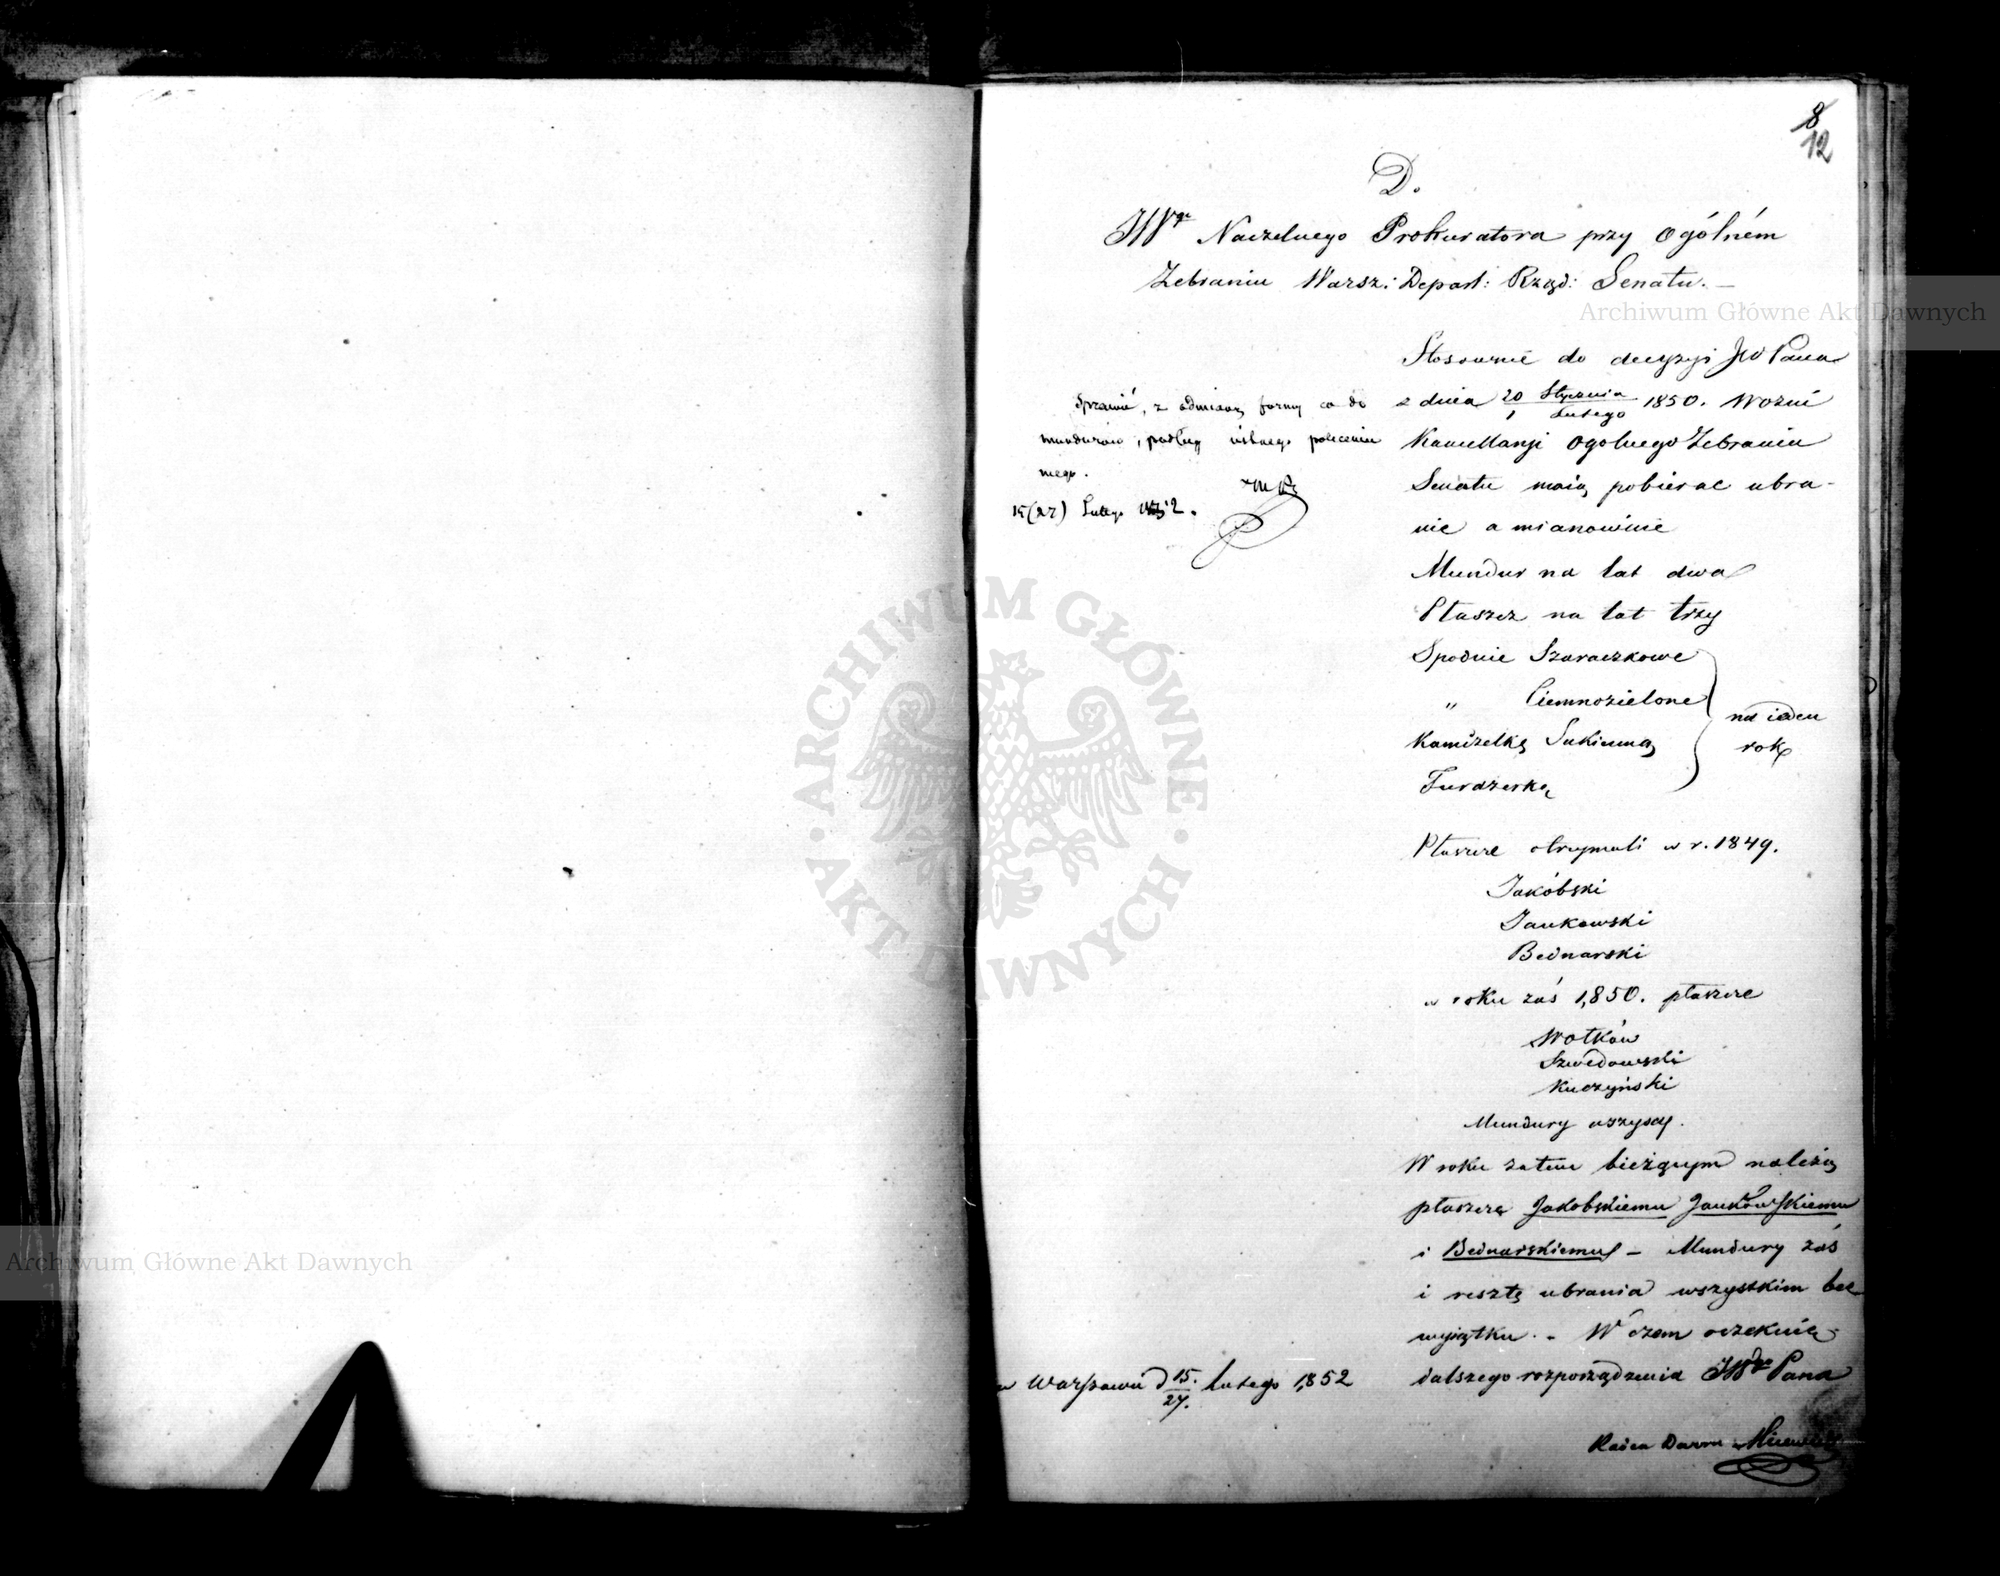 8
12
D.
JW^go Naczelnego Prokuratora przy Ogólném
Zebraniu Warsz: Depart: Rządz: Senatu. —
Stosownie do decyzyi JW Pana
z dnia 20 Stycznia / 1 Lutego 1850. Woźni
Kancellaryi Ogolnego Zebrania
Senatu maią pobierac ubra-
nie a mianowicie
Mundur na lat dwa
Płaszcz na lat trzy
Spodnie Szaraczkowe
„ Ciemnozielone
Kamizelkę Sukienną
Furażerkę
na ieden
rok
Płaszcze otrzymali w r. 1849.
Jakóbski
Jankowski
Bednarski
w roku zaś 1,850. płaszcze
Wołków
Szwedowski
Kuczyński
Mundury wszyscy.
W roku zatem bieżącym należą
płaszcze Jakobskiemu Jankowskiemu
i Bednarskiemu — Mundury zaś
i resztę ubrania wszystkim bez
wyiątku. — W czem oczekuię
dalszego rozporządzenia JW Pana
w Warszawie d 15/27. Lutego 1,852
Radca Dworu
Sprawić, z odmianą formy co do
mundurów, podług ustnego polecenia
mego.
15(27) Lutego 1852.
Archiwum Główne Akt Dawnych
ARCHIWUM GŁÓWNE AKT DAWNYCH
Archiwum Główne Akt Dawnych